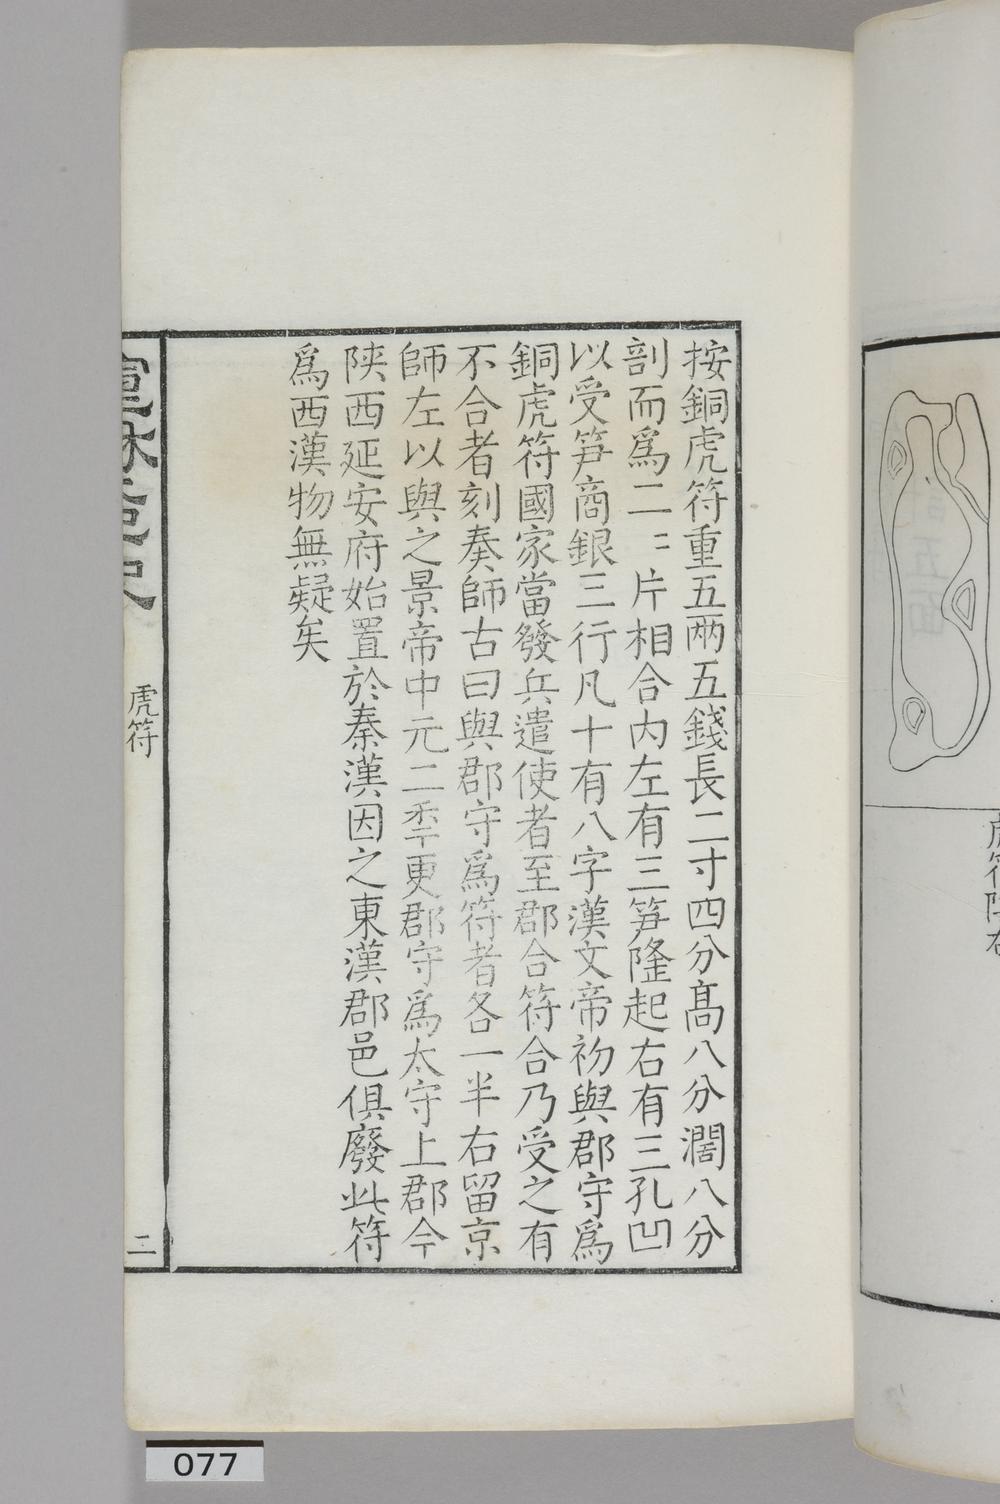 按銅虎符重五兩五錢長二寸四分髙八分濶八分
剖而爲二〻片相合内左有三笋隆起右有三孔凹
以受笋商銀三行凡十有八字漢文帝初與郡守爲
銅虎符國家當發兵遣使者至郡合符合乃受之有
不合者刻奏師古曰與郡守爲符者各一半右留京
師左以與之景帝中元二秊更郡守爲太守上郡今
陝西延安府始置於秦漢因之東漢郡邑俱廢此符
爲西漢物無疑矣
虎符
二